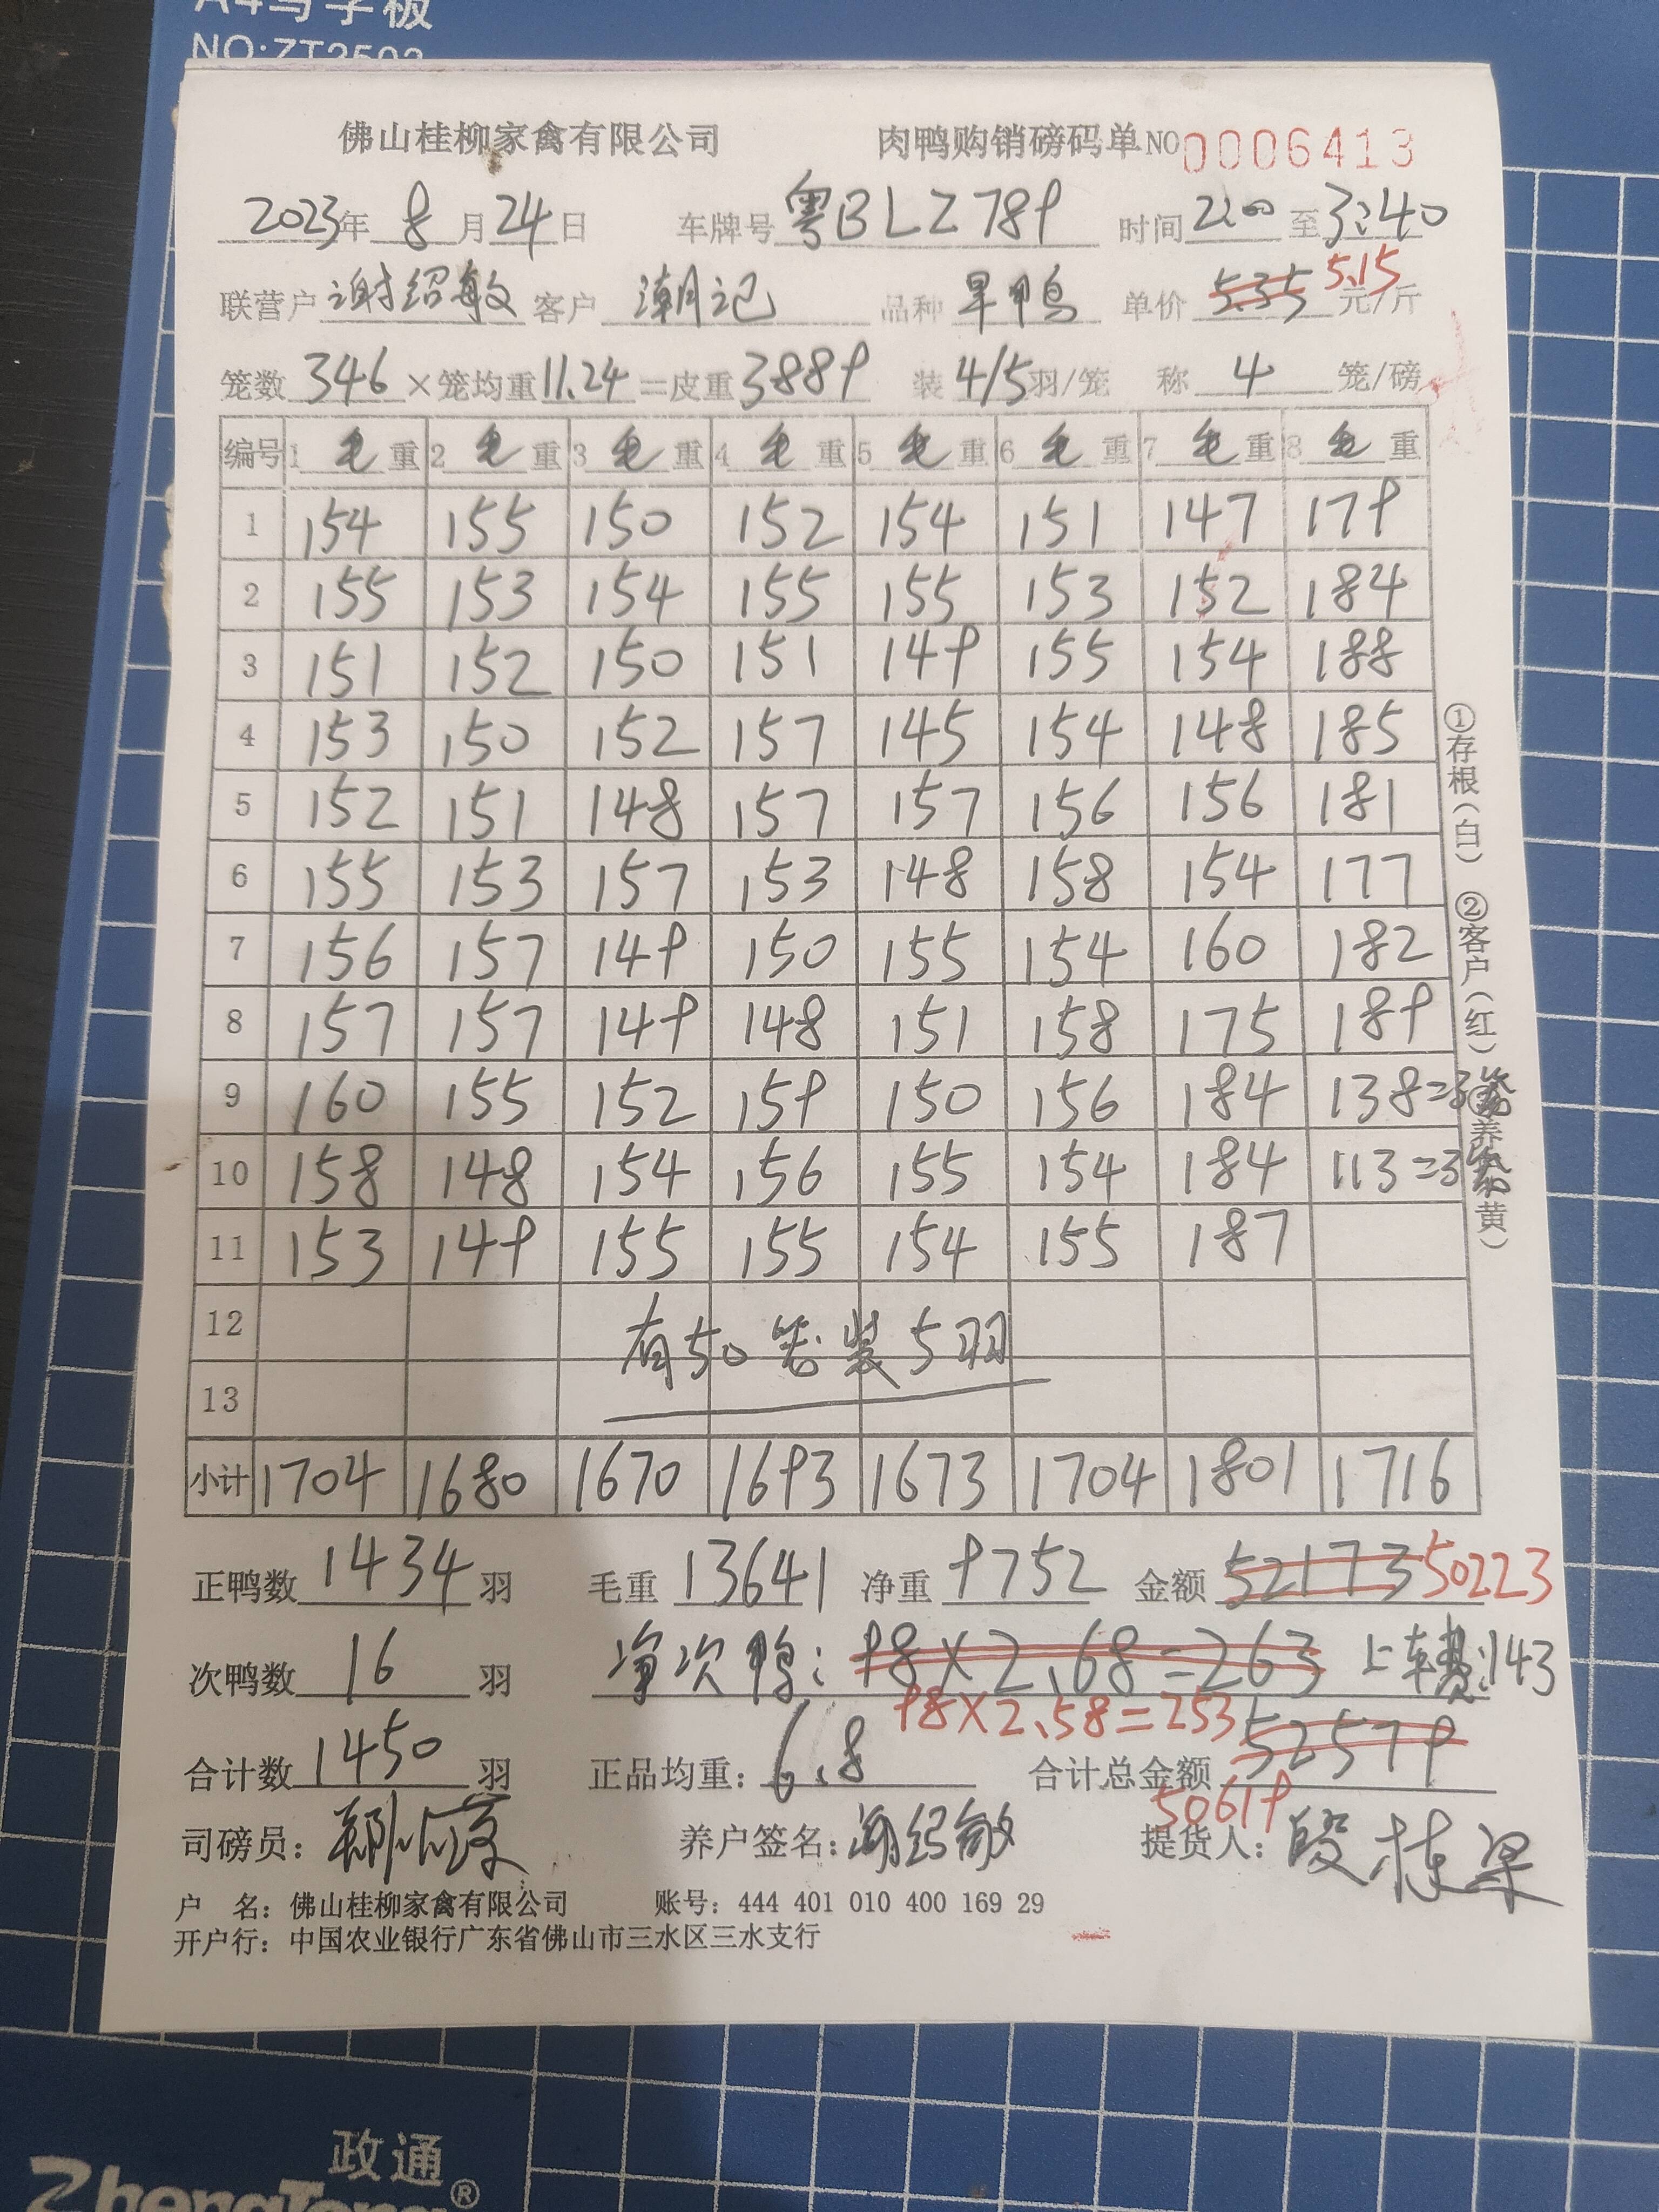 A4写字板
NO:ZT2503
佛山桂柳家禽有限公司 肉鸭购销磅码单NO 0006413
2023年 8 月 24 日 车牌号 粤BLZ789 时间 2:00 至 3:40
联营户 谢绍敏 客户 潮记 品种 旱鸭 单价 5.35 5.15 元/斤
笼数 346 ×笼均重 11.24 =皮重 3889 装 4/5 羽/笼 称 4 笼/磅
编号 1 毛 重 2 毛 重 3 毛 重 4 毛 重 5 毛 重 6 毛 重 7 毛 重 8 毛 重
1 154 155 150 152 154 151 147 179
2 155 153 154 155 155 153 152 184
3 151 152 150 151 149 155 154 188
4 153 150 152 157 145 154 148 185
5 152 151 148 157 157 156 156 181
6 155 153 157 153 148 158 154 177
7 156 157 149 150 155 154 160 182
8 157 157 149 148 151 158 175 189
9 160 155 152 159 150 156 184 138=3
10 158 148 154 156 155 154 184 113=3
11 153 149 155 155 154 155 187
12
有50笼装5羽
13
小计 1704 1680 1670 1693 1673 1704 1801 1716
①存根(白) ②客户(红) 养 黄)
正鸭数 1434 羽 毛重 13641 净重 9752 金额 52173 50223
次鸭数 16 羽 净次鸭: 98×2.68=263 上车费:143
98×2.58=253
合计数 1450 羽 正品均重: 6.8 合计总金额 52579
50619
司磅员: 养户签名: 谢绍敏 提货人: 段栋梁
户 名: 佛山桂柳家禽有限公司 账号: 444 401 010 400 169 29
开户行: 中国农业银行广东省佛山市三水区三水支行
政通
ZhengTong®